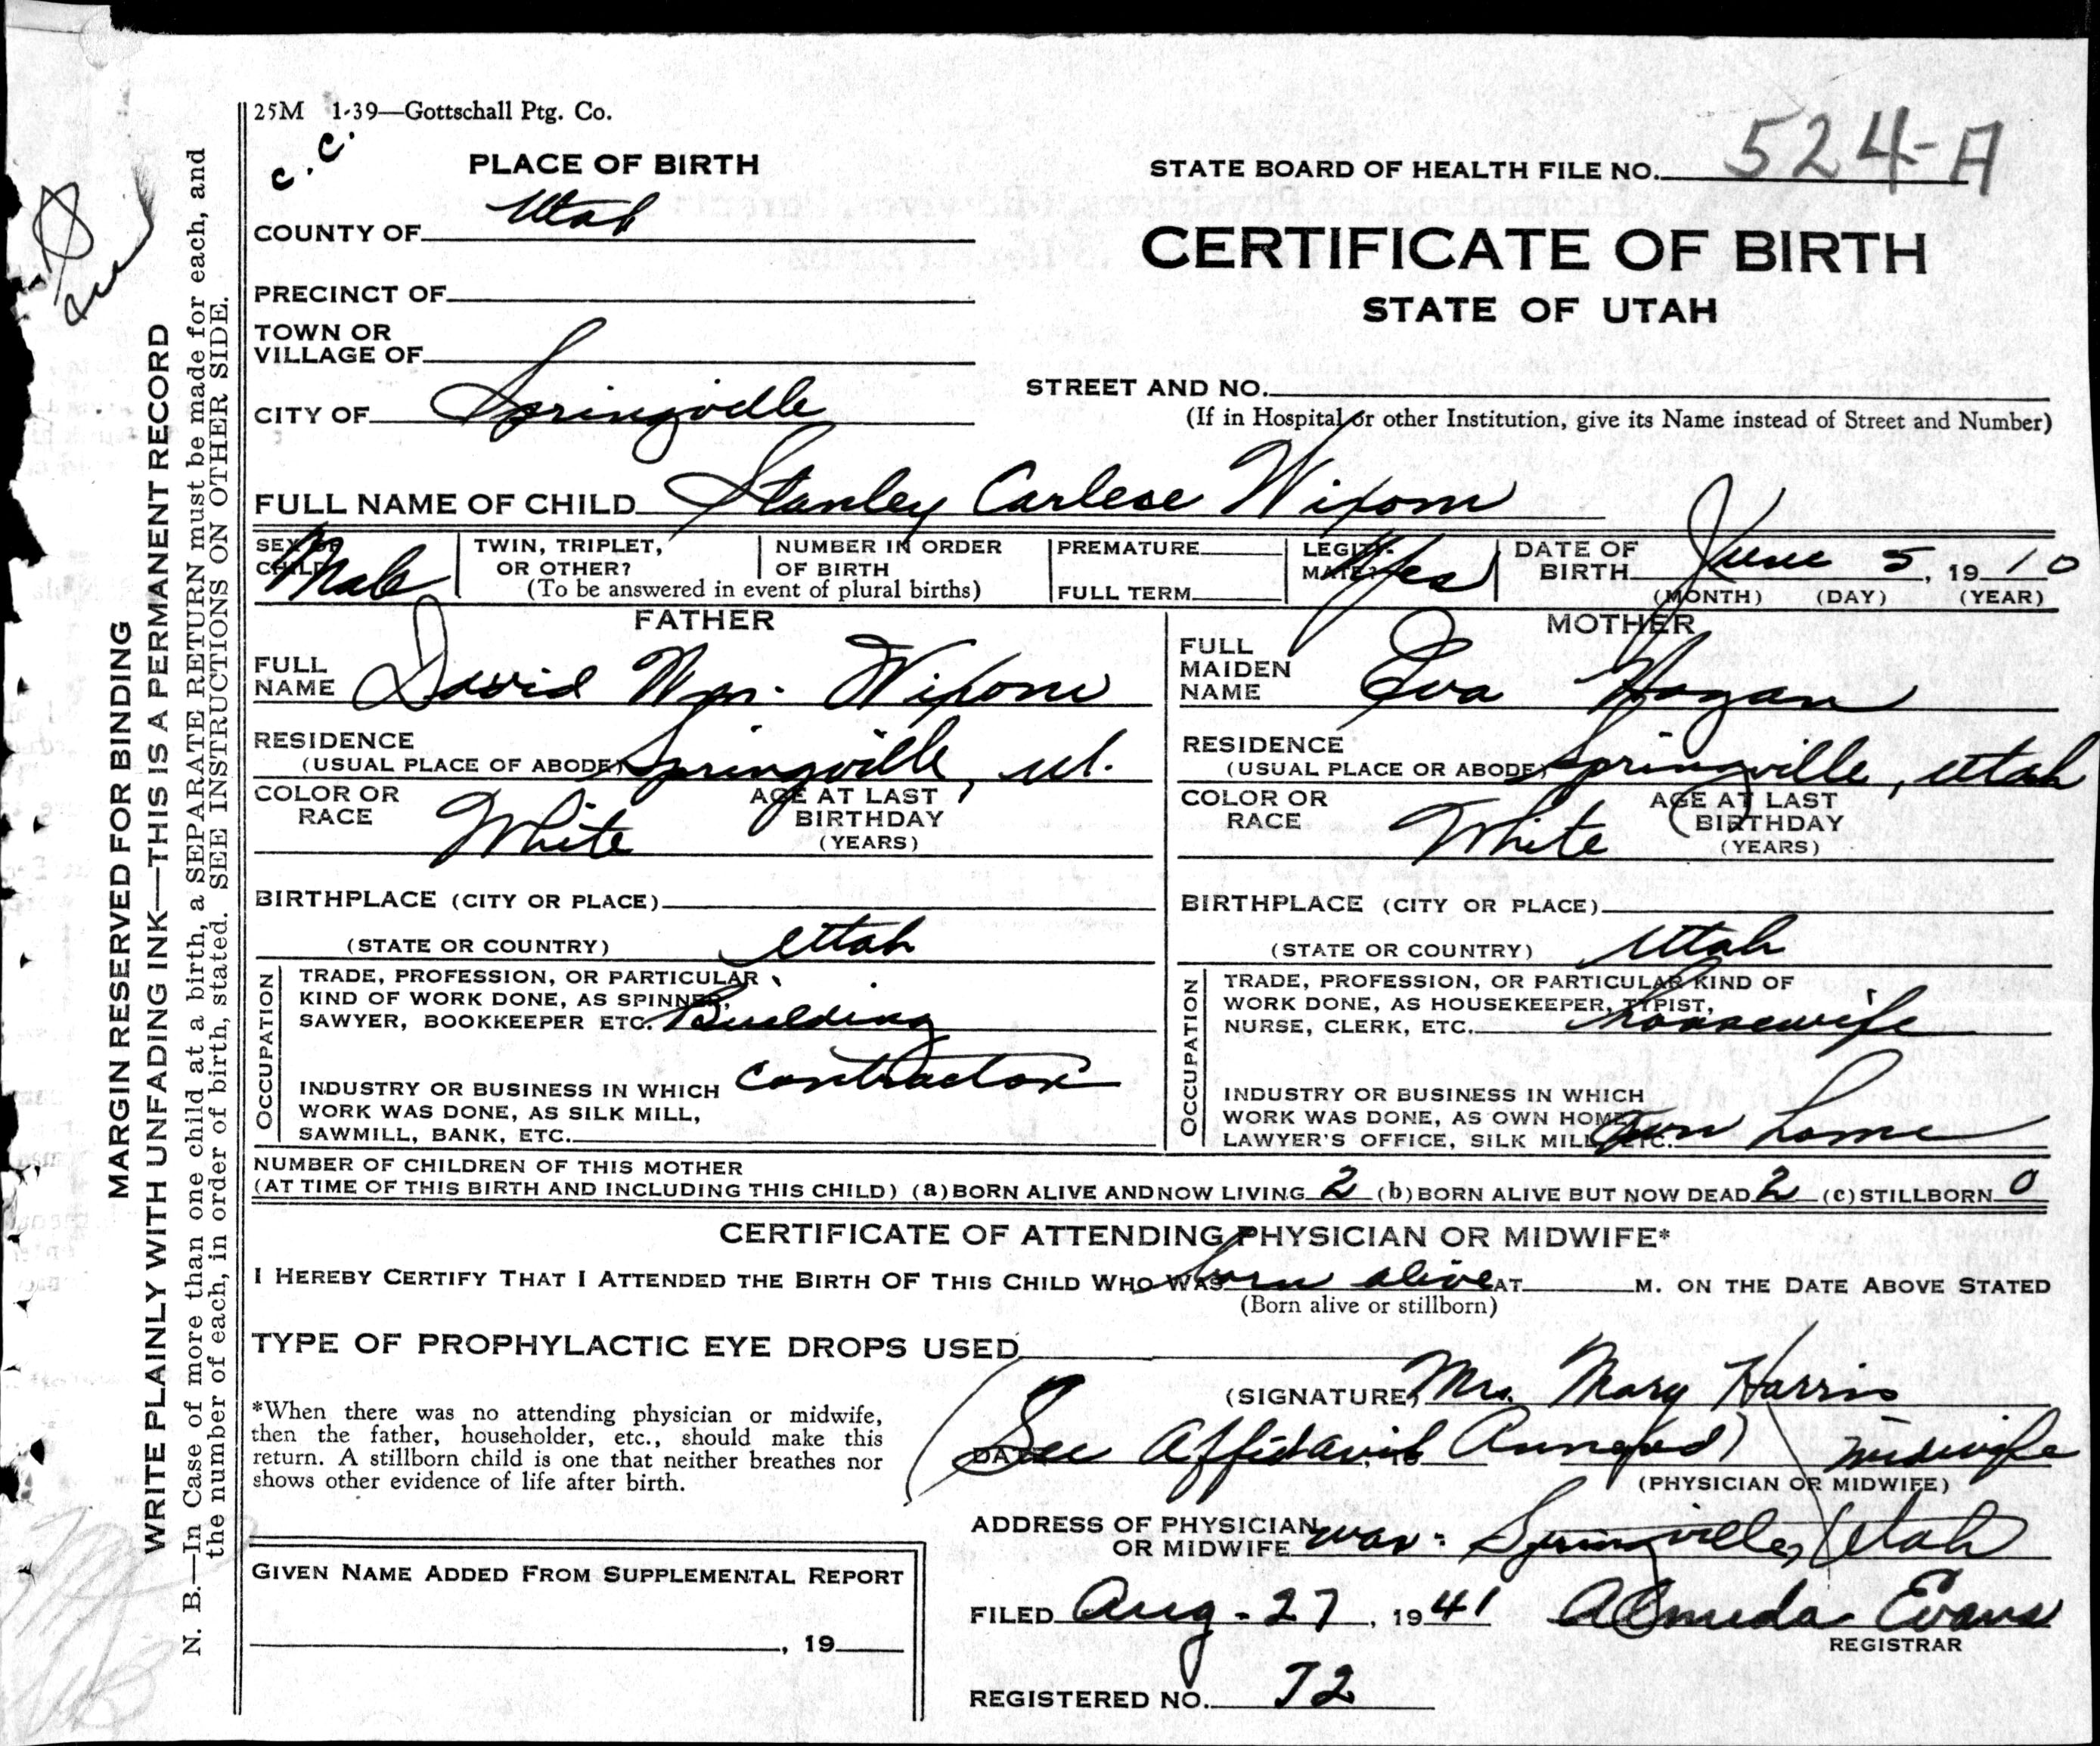 25M 1-39—Gottschall Ptg. Co.
c. c.
PLACE OF BIRTH
STATE BOARD OF HEALTH FILE NO. 524-A
COUNTY OF Utah
CERTIFICATE OF BIRTH
PRECINCT OF
STATE OF UTAH
TOWN OR
VILLAGE OF
STREET AND NO.
CITY OF Springville
(If in Hospital or other Institution, give its Name instead of Street and Number)
FULL NAME OF CHILD Stanley Carlese Wixom
SEX OF CHILD Male
TWIN, TRIPLET, OR OTHER?
NUMBER IN ORDER OF BIRTH
(To be answered in event of plural births)
PREMATURE
FULL TERM
LEGITIMATE? Yes
DATE OF BIRTH June 5, 1910
(MONTH) (DAY) (YEAR)
FATHER
FULL NAME David Wm. Wixom
RESIDENCE
(USUAL PLACE OF ABODE) Springville, ut.
COLOR OR RACE White
AGE AT LAST BIRTHDAY
(YEARS)
BIRTHPLACE (CITY OR PLACE)
(STATE OR COUNTRY) Utah
OCCUPATION
TRADE, PROFESSION, OR PARTICULAR
KIND OF WORK DONE, AS SPINNER,
SAWYER, BOOKKEEPER ETC. Building
contractor
INDUSTRY OR BUSINESS IN WHICH
WORK WAS DONE, AS SILK MILL,
SAWMILL, BANK, ETC.
MOTHER
FULL MAIDEN NAME Eva Hagan
RESIDENCE
(USUAL PLACE OR ABODE) Springville, Utah
COLOR OR RACE White
AGE AT LAST BIRTHDAY
(YEARS)
BIRTHPLACE (CITY OR PLACE)
(STATE OR COUNTRY) Utah
OCCUPATION
TRADE, PROFESSION, OR PARTICULAR KIND OF
WORK DONE, AS HOUSEKEEPER, TYPIST,
NURSE, CLERK, ETC. housewife
INDUSTRY OR BUSINESS IN WHICH
WORK WAS DONE, AS OWN HOME,
LAWYER'S OFFICE, SILK MILL, ETC. own home
NUMBER OF CHILDREN OF THIS MOTHER
(AT TIME OF THIS BIRTH AND INCLUDING THIS CHILD) (a) BORN ALIVE AND NOW LIVING 2 (b) BORN ALIVE BUT NOW DEAD 2 (c) STILLBORN 0
CERTIFICATE OF ATTENDING PHYSICIAN OR MIDWIFE*
I HEREBY CERTIFY THAT I ATTENDED THE BIRTH OF THIS CHILD WHO WAS born alive AT M. ON THE DATE ABOVE STATED
(Born alive or stillborn)
TYPE OF PROPHYLACTIC EYE DROPS USED
(SIGNATURE) Mrs. Mary Harris
*When there was no attending physician or midwife,
then the father, householder, etc., should make this
return. A stillborn child is one that neither breathes nor
shows other evidence of life after birth.
(See Affidavit Annexed) midwife
(PHYSICIAN OR MIDWIFE)
ADDRESS OF PHYSICIAN
OR MIDWIFE was: Springville, Utah
GIVEN NAME ADDED FROM SUPPLEMENTAL REPORT
, 19
FILED Aug - 27, 1941 Almeda Evans
REGISTRAR
REGISTERED NO. 72
MARGIN RESERVED FOR BINDING
WRITE PLAINLY WITH UNFADING INK—THIS IS A PERMANENT RECORD
N. B.—In Case of more than one child at a birth, a SEPARATE RETURN must be made for each, and
the number of each, in order of birth, stated. SEE INSTRUCTIONS ON OTHER SIDE.